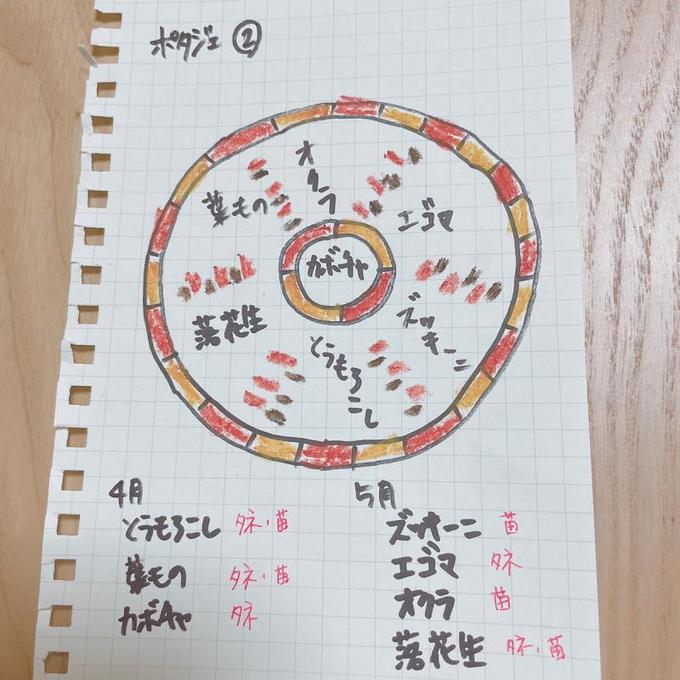 ポタジェ ②
オクラ
葉もの
エゴマ
カボチャ
落花生
ズッキーニ
とうもろこし
4月
とうもろこし タネ・苗
葉もの タネ・苗
カボチャ タネ
5月
ズッキーニ 苗
エゴマ タネ
オクラ 苗
落花生 タネ・苗